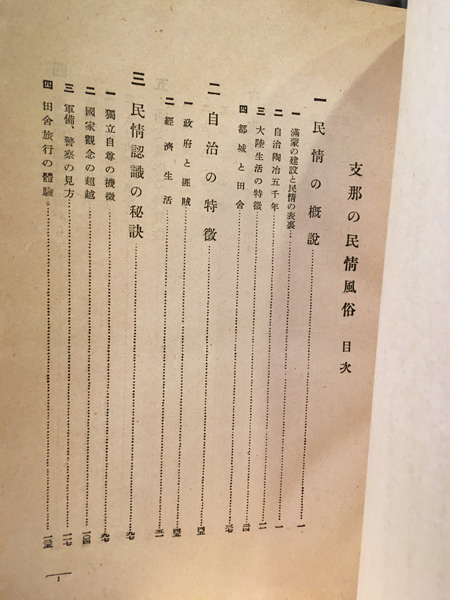 支那の民情風俗 目次
一 民情の概說……一
一 滿蒙の建設と民情の表裏……一
二 自治陶冶五千年……一
三 大陸生活の特徵……一二
四 都城と田舍……二四
二 自治の特徵……四五
一 政府と匪賊……四五
二 經濟生活……五一
三 民情認識の秘訣……九七
一 獨立自尊の機微……九七
二 國家觀念の超越……一〇四
三 軍備、警察の見方……一一七
四 田舍旅行の體驗……一三五
1